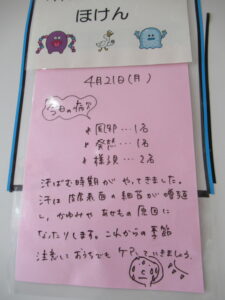 ほけん
4月21日(月)
今日の病気
風邪…1名
発熱…1名
様子見…2名
汗ばむ時期が やってきました。
汗は 皮膚表面の 細菌が増殖
し、かゆみや あせもの 原因に
なったりします。これからの季節
注意して おうちでも ケアしていきましょう。